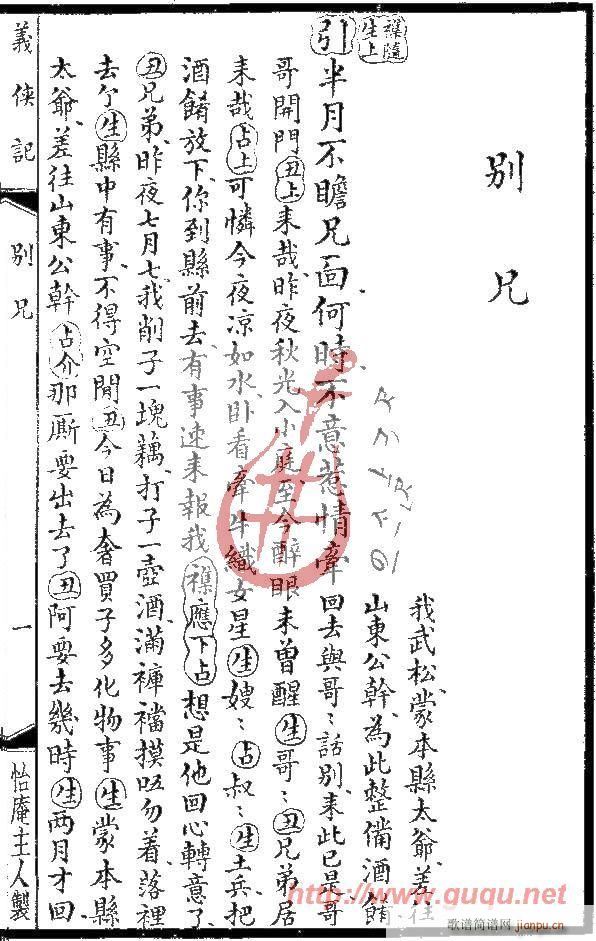 別兄
我武松蒙本縣太爺差往
山東公幹為此整備酒餚
襍隨生上
引半月不瞻兄面何時不意惹情牽
回去與哥〻話別来此已是哥
哥開門丑上来哉昨夜秋光入小庭至今醉眼未曾醒生哥〻丑兄弟居
来哉占上可憐今夜凉如水卧看牽牛織女星生嫂〻占叔〻生土兵把
酒餚放下你到縣前去有事速来報我襍應下占想是他回心轉意了
丑兄弟昨夜七月七我削子一塊藕打子一壺酒滿褲襠摸呒勿着落裡
去生縣中有事不得空閒丑今日為奢買子多化物事生蒙本縣
太爺差往山東公幹占介那厮要出去了丑阿要去幾時生两月才回
義俠記
別兄
一
怡庵主人製
http://www.guqu.net
歌谱简谱网
jianpu.cn